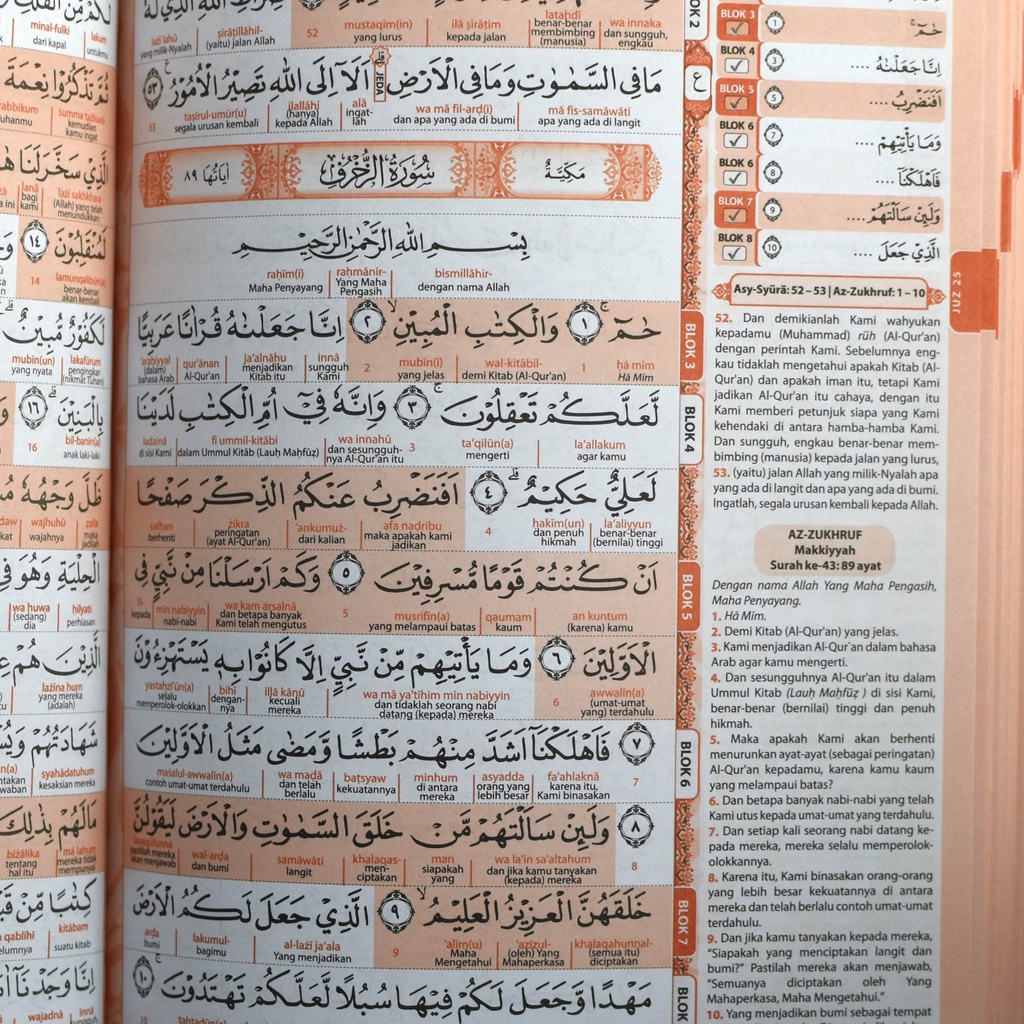 mustaqim(in) ilā ṣirāṭim latahdī wa innaka
52 yang lurus kepada jalan benar-benar membimbing (manusia) dan sungguh, engkau
ṣirāṭillāhil-
(yaitu) jalan Allah
مَا فِى السَّمٰوٰتِ وَمَا فِى الْاَرْضِۗ اَلَآ اِلَى اللّٰهِ تَصِيْرُ الْاُمُوْرُ ࣖ ٥٣
JEDA
taṣīrul-umūr(u) ilallāhi alā wa mā fil-arḍ(i) mā fis-samāwāti
53 segala urusan kembali (hanya) kepada Allah ingat-lah dan apa yang ada di bumi apa yang ada di langit
مَكِّيَّةٌ سُوْرَةُ الزُّخْرُفِ اٰيَاتُهَا ٨٩
بِسْمِ اللّٰهِ الرَّحْمٰنِ الرَّحِيْمِ
raḥīm(i) raḥmānir- bismillāhir-
Maha Penyayang Yang Maha Pengasih dengan nama Allah
حٰمۤ ۚ ١ وَالْكِتٰبِ الْمُبِيْنِ ۙ ٢ اِنَّا جَعَلْنٰهُ قُرْاٰنًا عَرَبِيًّا
'arabiyyal qur'ānan ja'alnāhu innā 2 mubīn(i) wal-kitābil- 1 ḥā mīm
(dalam) bahasa Arab Al-Qur'an menjadikan Kitab itu sungguh Kami yang jelas demi Kitab (Al-Qur'an) Ḥā Mīm
لَّعَلَّكُمْ تَعْقِلُوْنَ ۚ ٣ وَاِنَّهٗ فِيْٓ اُمِّ الْكِتٰبِ لَدَيْنَا
ladainā fī ummil-kitābi wa innahū 3 ta'qilūn(a) la'allakum
di sisi Kami dalam Ummul Kitāb (Lauḥ Maḥfūẓ) dan sesungguh-nya Al-Qur'an itu mengerti agar kamu
لَعَلِيٌّ حَكِيْمٌ ۗ ٤ اَفَنَضْرِبُ عَنْكُمُ الذِّكْرَ صَفْحًا
safḥan żikra 'ankumuż- afa naḍribu 4 ḥakīm(un) la'aliyyun
berhenti peringatan (ayat Al-Qur'an) dari kalian maka apakah kami jadikan dan penuh hikmah benar-benar (bernilai) tinggi
اَنْ كُنْتُمْ قَوْمًا مُّسْرِفِيْنَ ٥ وَكَمْ اَرْسَلْنَا مِنْ نَّبِيٍّ فِى
fil- min nabiyyin wa kam arsalnā 5 musrifīn(a) qaumam an kuntum
kepada nabi-nabi dan betapa banyak Kami telah mengutus yang melampaui batas kaum (karena) kamu
الْاَوَّلِيْنَ ٦ وَمَا يَأْتِيْهِمْ مِّنْ نَّبِيٍّ اِلَّا كَانُوْا بِهٖ يَسْتَهْزِءُوْنَ
yastahzi'ūn(a) bihī illā kānū wa mā ya'tīhim min nabiyyin 6 awwalīn(a)
selalu memperolok-olokkan dengan-nya kecuali mereka dan tidaklah seorang nabi datang (kepada) mereka (umat-umat yang) terdahulu
٧ فَاَهْلَكْنَآ اَشَدَّ مِنْهُمْ بَطْشًا وَّمَضٰى مَثَلُ الْاَوَّلِيْنَ
maṡalul-awwalīn(a) wa maḍā baṭsyaw minhum asyadda fa'ahlaknā 7
contoh umat-umat terdahulu dan telah berlalu kekuatannya di antara mereka orang yang lebih besar karena itu, Kami binasakan
٨ وَلَىِٕنْ سَاَلْتَهُمْ مَّنْ خَلَقَ السَّمٰوٰتِ وَالْاَرْضَ لَيَقُوْلُنَّ
layaqūlunna wal-arḍa samāwāti khalaqas- man wa la'in sa'altahum 8
pastilah mereka akan menjawab dan bumi langit men-ciptakan siapakah yang dan jika kamu tanyakan (kepada) mereka
خَلَقَهُنَّ الْعَزِيْزُ الْعَلِيْمُ ۙ ٩ الَّذِيْ جَعَلَ لَكُمُ الْاَرْضَ
arḍa lakumul- al-lażī ja'ala 9 'alīm(u) 'azīzul- khalaqahunnal-
bumi bagimu Yang menjadikan Maha Mengetahui (oleh) Yang Mahaperkasa (semua itu) diciptakan
مَهْدًا وَّجَعَلَ لَكُمْ فِيْهَا سُبُلًا لَّعَلَّكُمْ تَهْتَدُوْنَ ۚ ١٠
BLOK 2
ع
BLOK 3
BLOK 4
BLOK 5
BLOK 6
BLOK 7
BLOK
BLOK 3 1 حٰمۤ
BLOK 4 3 اِنَّا جَعَلْنٰهُ ....
BLOK 5 5 اَفَنَضْرِبُ ....
BLOK 6 7 وَمَا يَأْتِيْهِمْ ....
BLOK 6 8 فَاَهْلَكْنَآ ....
BLOK 7 9 وَلَىِٕنْ سَاَلْتَهُمْ ....
BLOK 8 10 الَّذِيْ جَعَلَ ....
JUZ 25
Asy-Syūrā: 52 – 53 | Az-Zukhruf: 1 – 10
52. Dan demikianlah Kami wahyukan
kepadamu (Muhammad) rūh (Al-Qur'an)
dengan perintah Kami. Sebelumnya eng-
kau tidaklah mengetahui apakah Kitab (Al-
Qur'an) dan apakah iman itu, tetapi Kami
jadikan Al-Qur'an itu cahaya, dengan itu
Kami memberi petunjuk siapa yang Kami
kehendaki di antara hamba-hamba Kami.
Dan sungguh, engkau benar-benar mem-
bimbing (manusia) kepada jalan yang lurus,
53. (yaitu) jalan Allah yang milik-Nyalah apa
yang ada di langit dan apa yang ada di bumi.
Ingatlah, segala urusan kembali kepada Allah.
AZ-ZUKHRUF
Makkiyyah
Surah ke-43: 89 ayat
Dengan nama Allah Yang Maha Pengasih,
Maha Penyayang.
1. Hā Mīm.
2. Demi Kitab (Al-Qur'an) yang jelas.
3. Kami menjadikan Al-Qur'an dalam bahasa
Arab agar kamu mengerti.
4. Dan sesungguhnya Al-Qur'an itu dalam
Ummul Kitab (Lauḥ Maḥfūẓ ) di sisi Kami,
benar-benar (bernilai) tinggi dan penuh
hikmah.
5. Maka apakah Kami akan berhenti
menurunkan ayat-ayat (sebagai peringatan)
Al-Qur'an kepadamu, karena kamu kaum
yang melampaui batas?
6. Dan betapa banyak nabi-nabi yang telah
Kami utus kepada umat-umat yang terdahulu.
7. Dan setiap kali seorang nabi datang ke-
pada mereka, mereka selalu memperolok-
olokkannya.
8. Karena itu, Kami binasakan orang-orang
yang lebih besar kekuatannya di antara
mereka dan telah berlalu contoh umat-umat
terdahulu.
9. Dan jika kamu tanyakan kepada mereka,
"Siapakah yang menciptakan langit dan
bumi?" Pastilah mereka akan menjawab,
"Semuanya diciptakan oleh Yang
Mahaperkasa, Maha Mengetahui."
10. Yang menjadikan bumi sebagai tempat